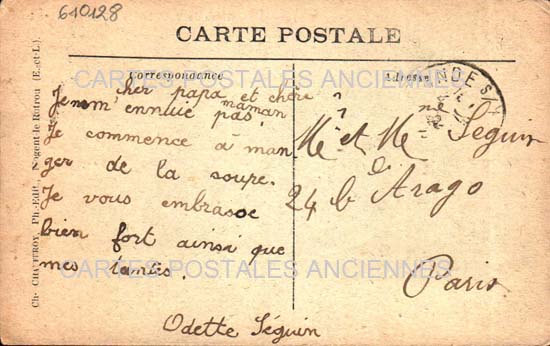 610128
CARTE POSTALE
Correspondance
Adresse
CARTES POSTALES ANCIENNES
cher papa et chère
maman
Je m'ennuie pas.
Je commence à man
ger de la soupe.
Je vous embrasse
bien fort ainsi que
mes tantes.
Odette Séguin
Me et Me Séguin
24 b d Arago
Paris
CARTES POSTALES ANCIENNES
Ch. CHAUFFROY, Ph.-Edit., Nogent-le-Rotrou (E.-et-L.).